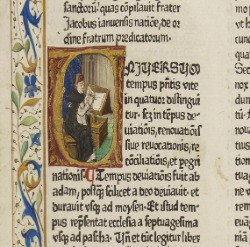 sanctorū. quas cōpilauit frater
Jacobus ianuensis natiōe, de or
dine fratrum predicatorum.
VNIVERSVM
tempus pñtis vite
in quatuor distingui
tur. scz in tēpus de
uiatiōis, renouatiōis
siue reuocatiōis, re
cōciliatiōis, et pegri
nationis. Tempus deuiatiōis fuit ab
adam, postꝗ̃ scilicet a deo deuiauit. et
durauit vsqꝫ ad moysen. Et istud tem
pus repñtat ecclesia a septuagesima
vsqꝫ ad pascha. Vñ et tūc legitur liber